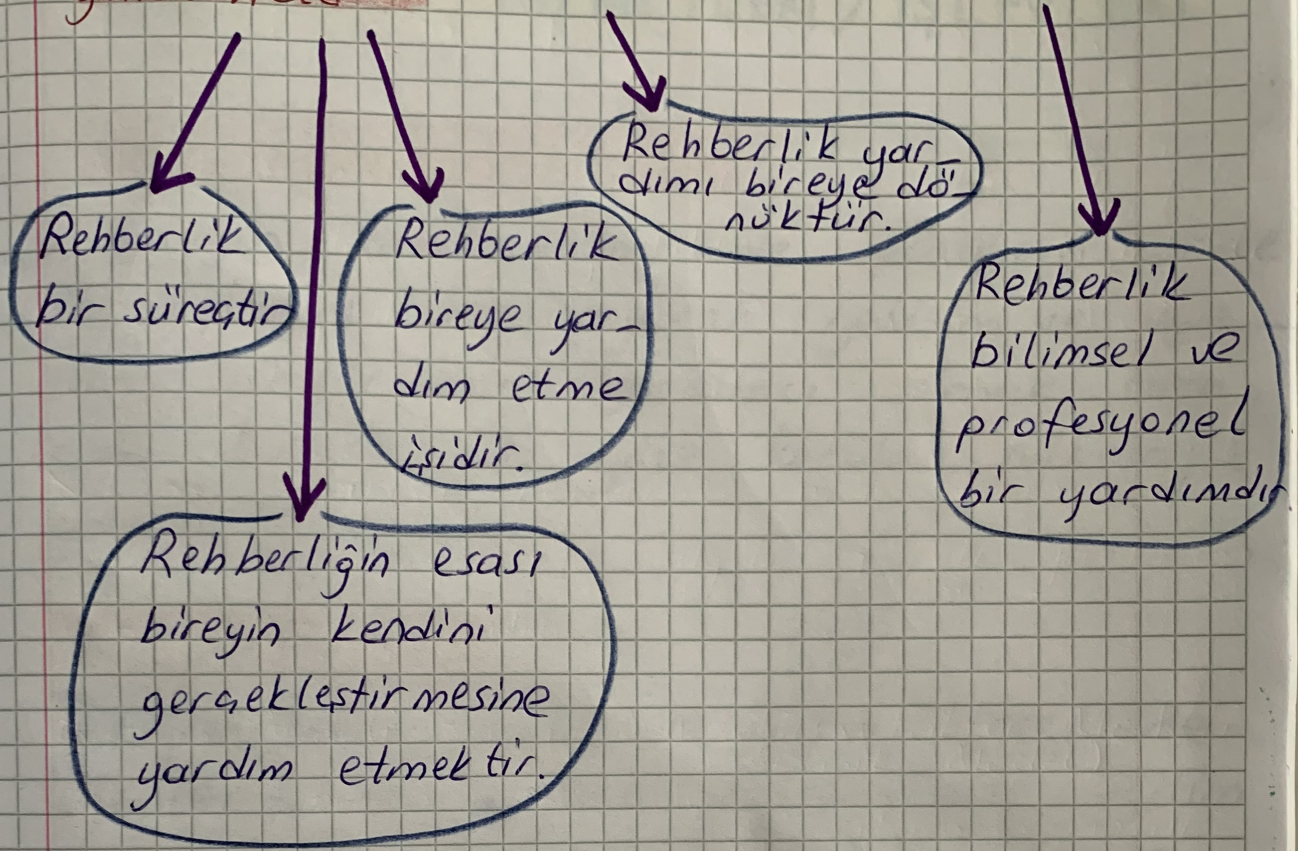 Rehberlik
bir süreçtir
Rehberlik
bireye yar-
dım etme
işidir.
Rehberlik yar-
dımı bireye dö-
nüktür.
Rehberlik
bilimsel ve
profesyonel
bir yardımdır
Rehberliğin esası
bireyin kendini
gerçekleştirmesine
yardım etmektir.